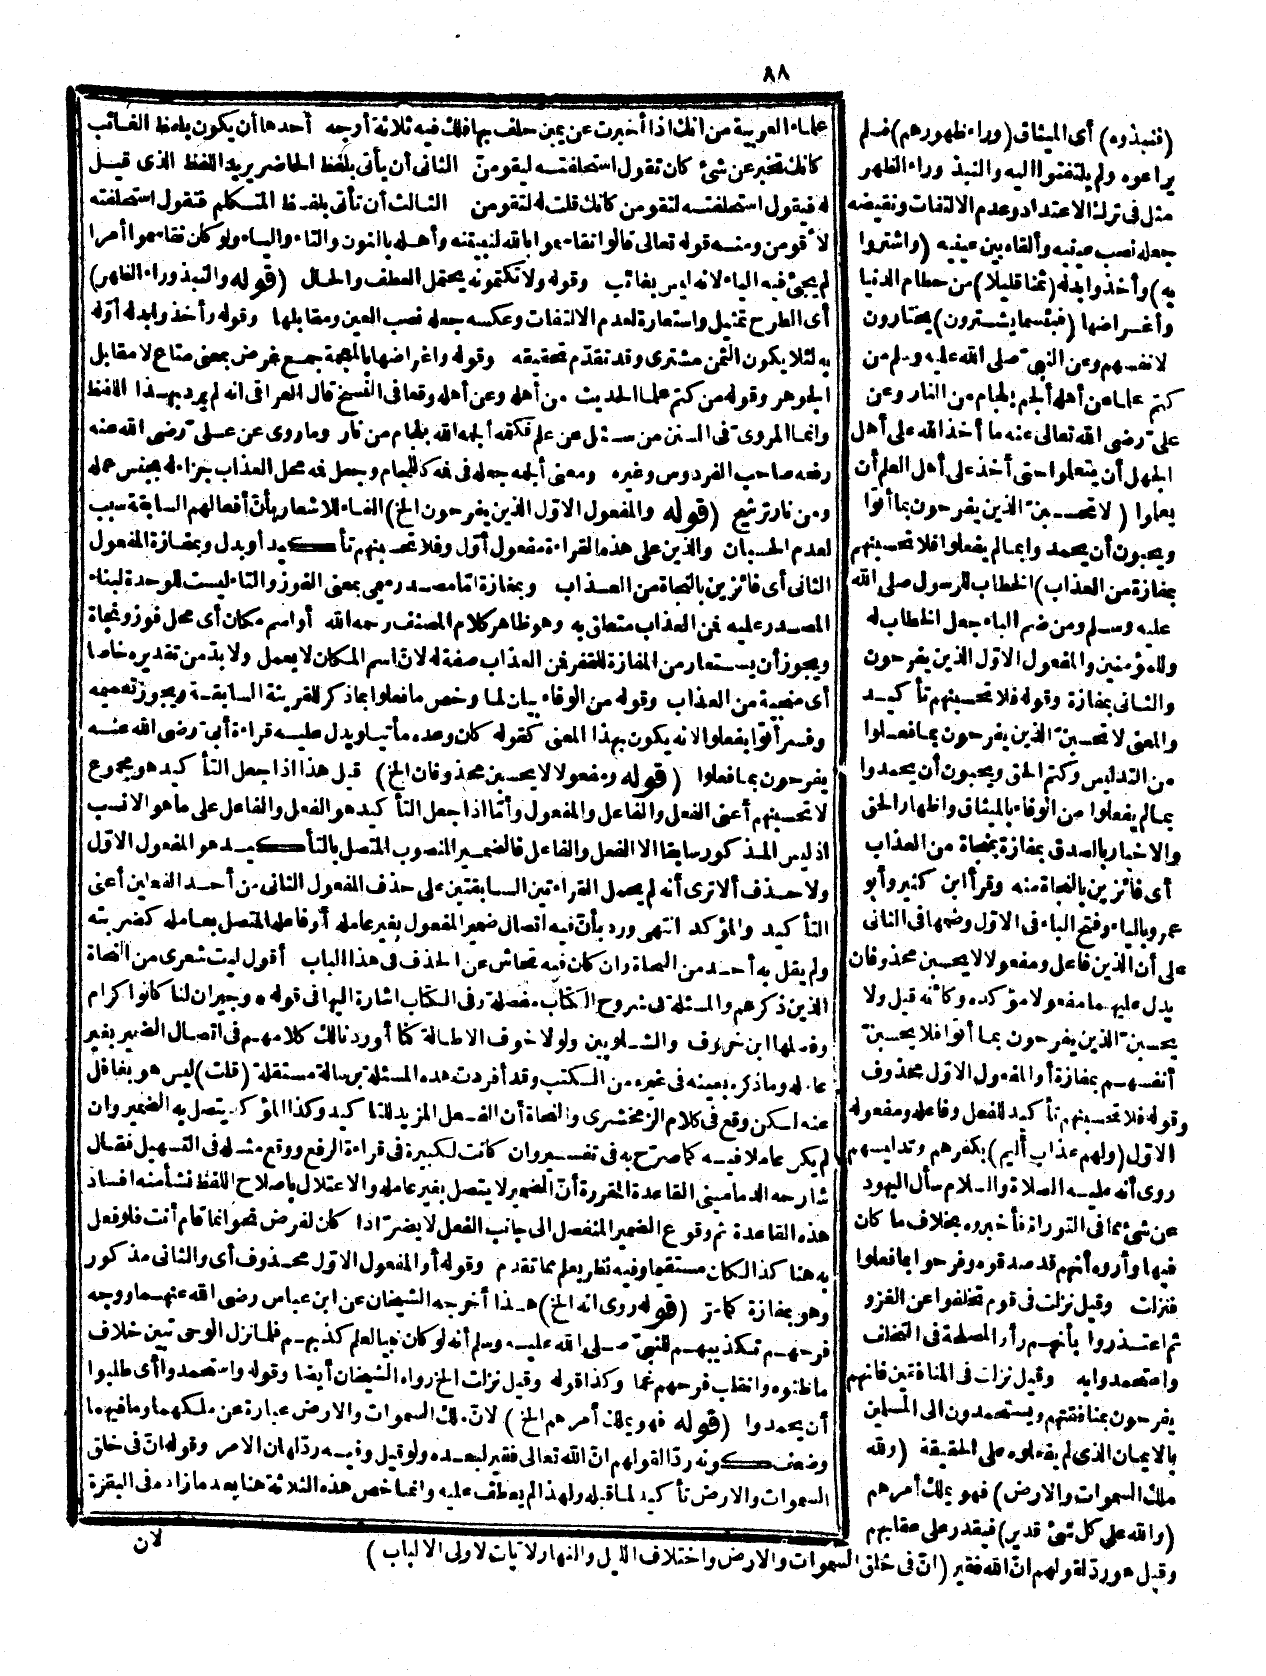 ٨٨
(فنبذوه) أى الميثاق (وراء ظهورهم) فلم
يراعوه ولم يلتفتوا اليه والنبذ وراء الظهر
مثل فى ترك الاعتداد وعدم الالتفات ونقيضه
جعله نصب عينيه وألقاه بين عينيه (واشتروا
به) وأخذوا بدله (ثمنا قليلا) من حطام الدنيا
وأغراضها (فبئس ما يشترون) يختارون
لانفسهم وعن النبىّ صلى الله عليه وسلم من
كتم علما عن أهله ألجم بلجام من النار وعن
علىّ رضى الله تعالى عنه ما أخذ الله على أهل
الجهل أن يتعلموا حتى أخذ على أهل العلم أن
يعلموا (لا تحسبنّ الذين يفرحون بما أتوا
ويحبون أن يحمدوا بما لم يفعلوا فلا تحسبنهم
بمفازة من العذاب) الخطاب للرسول صلى الله
عليه وسلم ومن ضم الباء جعل الخطاب له
وللمؤمنين والمفعول الاوّل الذين يفرحون
والثانى بمفازة وقوله فلا تحسبنهم تأكيد
والمعنى لا تحسبنّ الذين يفرحون بما فعلوا
من التدليس وكتم الحق ويحبون أن يحمدوا
بما لم يفعلوا من الوفاء بالميثاق واظهار الحق
والاخبار بالصدق بمفازة بمنجاة من العذاب
أى فائزين بالنجاة منه وقرأ ابن كثير وأبو
عمرو بالياء وفتح الباء فى الاول وضمها فى الثانى
على أن الذين فاعل ومفعولا لا يحسبن محذوفان
يدل عليهما مفعولا مؤكده وكأنه قيل ولا
يحسبنّ الذين يفرحون بما أتوا فلا يحسبنّ
أنفسهم بمفازة أو المفعول الاوّل محذوف
وقوله فلا تحسبنهم تأكيد للفعل وفاعله ومفعوله
الاوّل (ولهم عذاب أليم) بكفرهم وتدليسهم
روى أنه عليه الصلاة والسلام سأل اليهود
عن شئ مما فى التوراة فأخبروه بخلاف ما كان
فيها وأروه أنهم قد صدقوه وفرحوا بما فعلوا
فنزلت وقيل نزلت فى قوم تخلفوا عن الغزو
ثم اعتذروا بأنهم رأوا المصلحة فى التخلف
واستحمدوا به وقيل نزلت فى المنافقين فانهم
يفرحون بمنافقتهم ويستحمدون الى المسلمين
بالايمان الذى لم يفعلوه على الحقيقة (ولله
ملك السموات والارض) فهو يملك أمرهم
(والله على كل شئ قدير) فيقدر على عقابهم
وقيل هو ردّ لقولهم انّ الله فقير (انّ فى خلق السموات والارض واختلاف الليل والنهار لآيات لاولى الالباب)
علماء العربية من انك اذا أخبرت عن يمين حلف بها فلك فيه ثلاثة أوجه أحدها أن يكون بلفظ الغائب
كانك تخبر عن شئ كان تقول استحلفته ليقومنّ الثانى أن يأتى بلفظ الحاضر يريد اللفظ الذى قيل
له فيقول استحلفته لتقومن كانك قلت له لتقومن الثالث أن تأتى بلفظ المتكلم فتقول استحلفته
لأقومن ومنه قوله تعالى قالوا تقاسموا بالله لنبيتنه وأهله بالنون والتاء والياء ولو كان تقاسموا أمرا
لم يجئ فيه الياء لانه ليس بغائب وقوله ولا تكتمونه يحتمل العطف والحال (قوله والنبذ وراء الظهر)
أى الطرح تمثيل واستعارة لعدم الالتفات وعكسه جعله نصب العين ومقابلها وقوله وأخذوا بدله أوّله
به لئلا يكون الثمن مشترى وقد تقدّم تحقيقه وقوله واغراضها بالمعجمة جمع غرض بمعنى متاع لا مقابل
الجوهر وقوله من كتم علما الحديث من أهله وعن أهله وقعا فى النسخ قال العراقى انه لم يرد بهذا اللفظ
وانما المروىّ فى السنن من سئل عن علم فكتمه ألجمه الله بلجام من نار وما روى عن علىّ رضى الله عنه
رفعه صاحب الفردوس وغيره ومعنى ألجمه جعله فى فمه كاللجام وجعل فمه محل العذاب جزاء له بجنس عمله
ومن نار ترشيح (قوله والمفعول الاوّل الذين يفرحون الخ) الفاء للاشعار بأنّ أفعالهم السابقة سبب
لعدم الحسبان والذين على هذه القراءة مفعول أوّل وفلا تحسبنهم تأكيد أو بدل وبمفازة المفعول
الثانى أى فائزين بالنجاة من العذاب وبمفازة امّا مصدر ميمى بمعنى الفوز والتاء ليست للوحدة لبناء
المصدر عليه فمن العذاب متعلق به وهو ظاهر كلام المصنف رحمه الله أو اسم مكان أى محل فوز ونجاة
ويجوز أن يستعار من المفازة للقفر فمن العذاب صفة له لانّ اسم المكان لا يعمل ولا بدّ من تقديره خاصا
أى منجية من العذاب وقوله من الوفاء بيان لما وخص ما فعلوا بما ذكر للقرينة السابقة ويجوز تعميمه
وفسر أتوا بفعلوا لانه يكون بهذا المعنى كقوله كان وعده مأتيا ويدل عليه قراءة أبىّ رضى الله عنه
يفرحون بما فعلوا (قوله ومفعولا لا يحسبن محذوفان الخ) قيل هذا اذا جعل التأكيد هو مجموع
لا تحسبنهم أعنى الفعل والفاعل والمفعول وأمّا اذا جعل التأكيد هو الفعل والفاعل على ما هو الانسب
اذ ليس المذكور سابقا الا الفعل والفاعل فالضمير المنصوب المتصل بالتأكيد هو المفعول الاوّل
ولا حذف ألا ترى أنه لم يحمل القراءتين السابقتين على حذف المفعول الثانى من أحد الفعلين أعنى
التأكيد والمؤكد انتهى ورد بأنّ فيه اتصال ضمير المفعول بغير عامله أو فاعله المتصل بعامله كضربته
ولم يقل به أحد من النحاة وان كان فيه تحاش عن الحذف فى هذا الباب أقول ليت شعرى من النحاة
الذين ذكرهم والمسئلة فى شروح الكتاب مفصلة وفى الكتاب اشارة اليها فى قوله * وجيران لنا كانوا كرام
وفصلها ابن خروف والشلوبين ولولا خوف الاطالة كنا أوردنا لك كلامهم فى اتصال الضمير بغير
عامله وما ذكره بعينه فى غيره من الكتب وقد أفردت هذه المسئلة برسالة مستقلة (قلت) ليس هو بغافل
عنه لكن وقع فى كلام الزمخشرى والنحاة أن الفعل المزيد للتأكيد وكذا المؤكد يتصل به الضمير وان
لم يكن عاملا فيه كما صرّح به فى تفسير وان كانت لكبيرة فى قراءة الرفع ووقع مثله فى التسهيل فقال
شارحه الدمامينى القاعدة المقررة أنّ الضمير لا يتصل بغير عامله والاعتلال باصلاح اللفظ نشأ منه افساد
هذه القاعدة ثم وقوع الضمير المنفصل الى جانب الفعل لا يضرّ اذا كان لغرض نحو انما قام أنت فلو فعل
به هنا كذا لكان مستقيما وفيه نظر يعلم مما تقدم وقوله أو المفعول الاوّل محذوف أى والثانى مذكور
وهو بمفازة كما مرّ (قوله روى انه الخ) هذا أخرجه الشيخان عن ابن عباس رضى الله عنهما ووجه
فرحهم تكذيبهم للنبىّ صلى الله عليه وسلم أنه لو كان نبيا لعلم كذبهم فلما نزل الوحى تبين خلاف
ما ظنوه وانقلب فرحهم غما وكذا قوله وقيل نزلت الخ رواه الشيخان أيضا وقوله واستحمدوا أى طلبوا
أن يحمدوا (قوله فهو يملك أمرهم الخ) لانّ ملك السموات والارض عبارة عن ملكهما وما فيهما
وضعف كونه ردّا لقولهم انّ الله تعالى فقير لبعده ولو قيل وفيه ردّ لهان الامر وقوله انّ فى خلق
السموات والارض تأكيد لما قبله ولهذا لم يعطف عليه وانما خص هذه الثلاثة هنا بعد ما زاد فى البقرة
لان